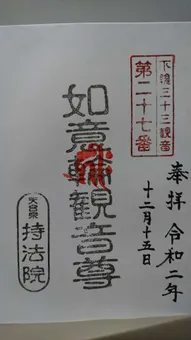 奉拝 令和二年
十二月十五日
下總三十三観音
第二十七番
如意輪観音尊
天台宗
持法院